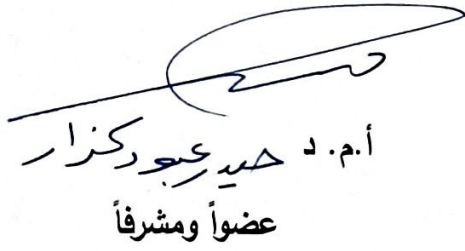 أ.م. د حيدر عبود كزار
عضواً ومشرفاً